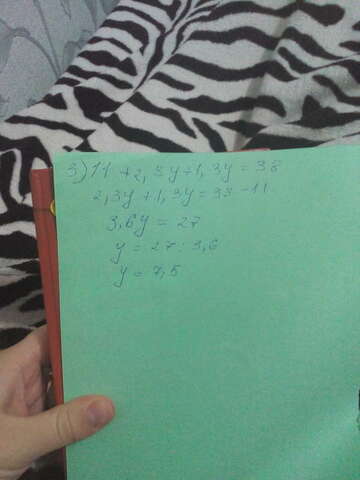 3) 11 + 2,3y + 1,3y = 38
2,3y + 1,3y = 38 - 11
3,6y = 27
y = 27 : 3,6
y = 7,5